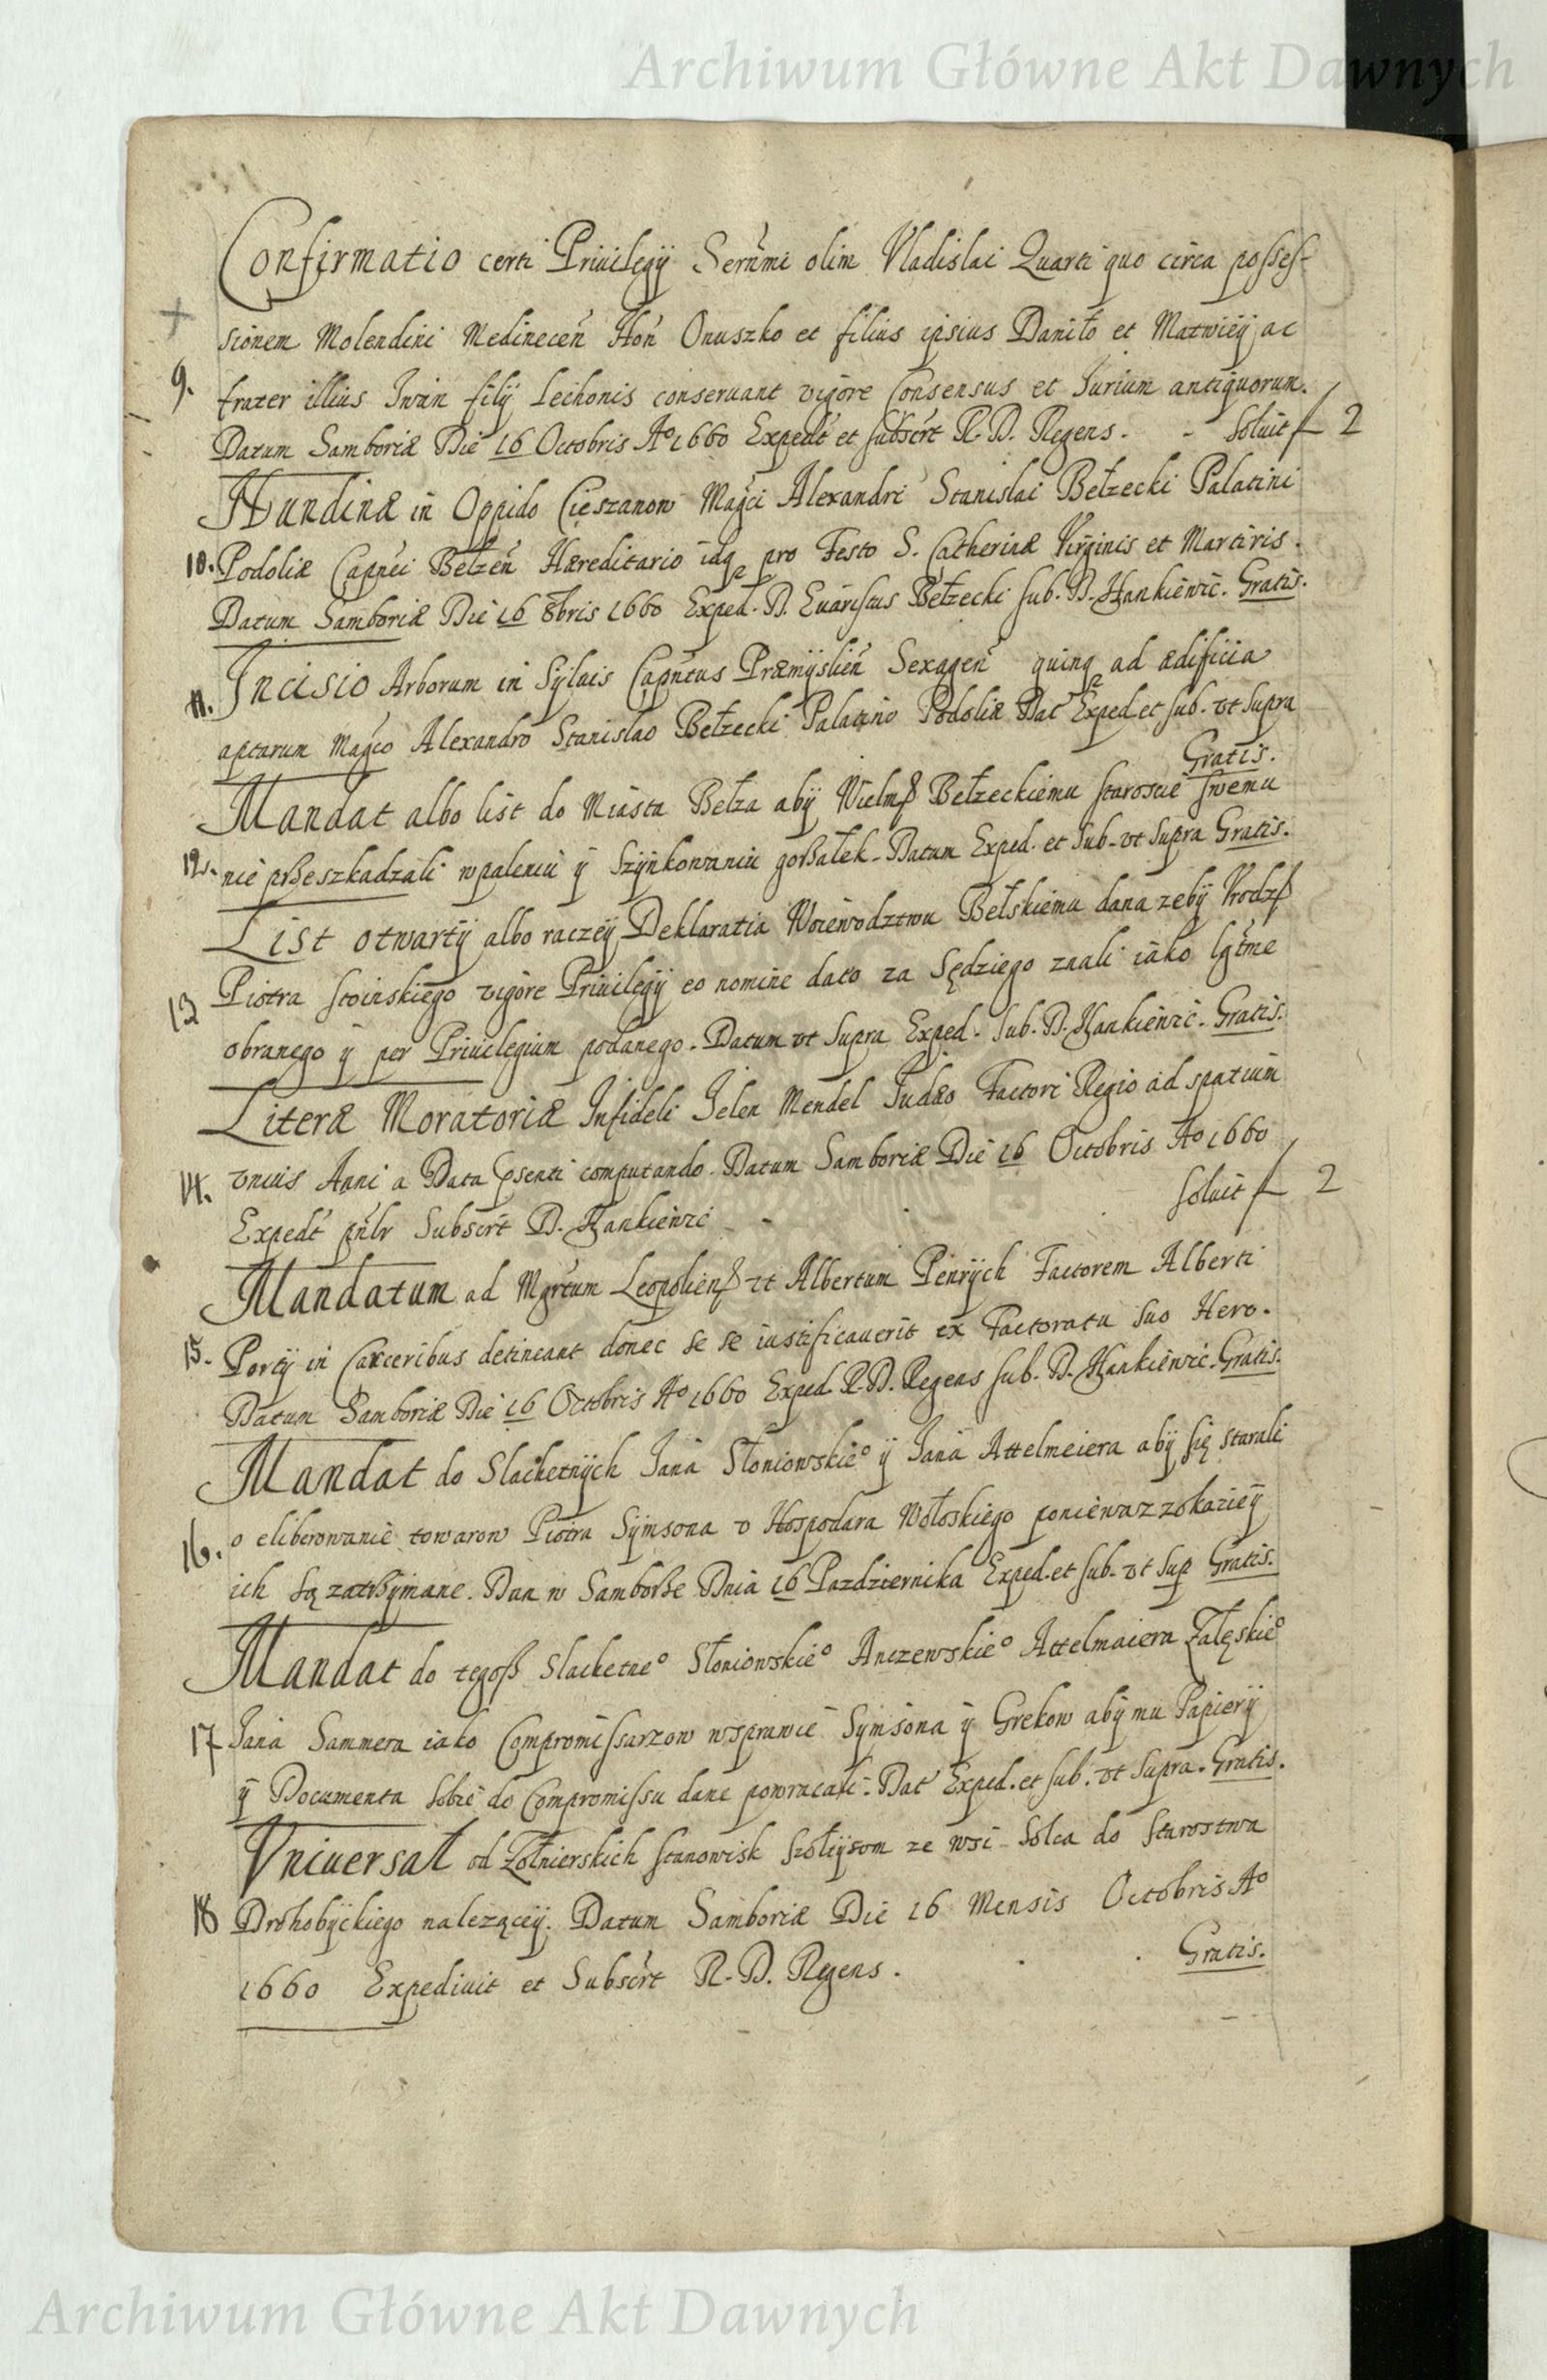 Archiwum Główne Akt Dawnych
Confirmatio certi Priuilegÿ Serñmi olim Vladislai Quarti quo circa posses-
sionem Molendini Medinecen̄ Hon̄ Onuszko et filius ipsius Daniło et Matwiéÿ ac
9. frater illius Iwan filÿ Lechonis conseruant vigore Consensus et Iurium antiquorum.
Datum Samboriæ Die 16 Octobris Aº 1660 Expedt et subscrt R. D. Regens. - Soluit f 2
Nundinæ in Oppido Cieszanow Magci Alexandri Stanislai Bełzecki Palatini
10. Podoliæ Capnei Bełzen̄ Hæreditario idq pro Festo S. Catherinæ Virginis et Martiris.
Datum Samboriæ Die 16 8bris 1660 Exped. D. Euaristus Bełzecki sub. D. Hankiewic. Gratis.
11. Incisio Arborum in Sÿluis Capntus Præmÿslien̄ Sexagen̄ quinq ad ædificia
aptarum Magco Alexandro Stanislao Bełzecki Palatino Podoliæ Dat Exped et sub. vt Supra
Gratis.
Mandat albo list do Miasta Bełza abÿ Wielmß Bełzeckiemu staroscie swemu
12. nie prßeszkadzali w paleniu ÿ Szÿnkowaniu gorßałek. Datum Exped. et Sub. vt Supra Gratis.
List otwartÿ albo raczeÿ Deklaratia Woiewodztwu Bełskiemu dana zebÿ Vrodzß
13 Piotra stoinskiego vigore Priuilegÿ eo nomine dato za Sędziego znali iako lgtme
obranego ÿ per Priuilegium podanego. Datum vt Supra Exped. Sub. D. Hankiewic. Gratis.
Literæ Moratoriæ Infideli Ielen Mendel Iudæo Factori Regio ad spatium
14. vnius Anni a Data psenti computando. Datum Samboriæ Die 16 Octobris Aº 1660
Expedt pnlr Subscrt D. Hankiewic - Soluit f 2
Mandatum ad Mgrtum Leopolienß vt Albertum Penrÿch Factorem Alberti
15. Portÿ in Carceribus detineant donec se se iustificauerit ex Factoratu suo Hero.
Datum Samboriæ Die 16 Octobris Aº 1660 Exped. R. D. Regens sub. D. Hankiewic. Gratis.
Mandat do Slachetnÿch Iana Słoniowskiº ÿ Iana Attelmeiera abÿ się starali
16. o eliberowanie towarow Piotra Sÿmsona v Hospodara Wołoskiego poniewaz z okazieÿ
ich są zatrßÿmane. Dan w Samborße Dnia 16 Pazdziernika Exped. et sub. vt sup Gratis.
Mandat do tegoß Slachetneº Słoniowskieº Anczewskieº Attelmaiera Załęskieº
17 Iana Sammera iako Compromissarzow w sprawie Sÿmsona ÿ Grekow abÿ mu Papierÿ
ÿ Documenta sobie do Compromissu dane powracali. Dat Exped. et sub. vt supra. Gratis.
Vniuersał od Zołnierskich stanowisk szołtÿsom ze wsi Solca do Starostwa
18 Drohobÿckiego nalezącéÿ. Datum Samboriæ Die 16 Mensis Octobris Aº
1660 Expediuit et Subscrt R. D. Regens. Gratis.
Archiwum Główne Akt Dawnych